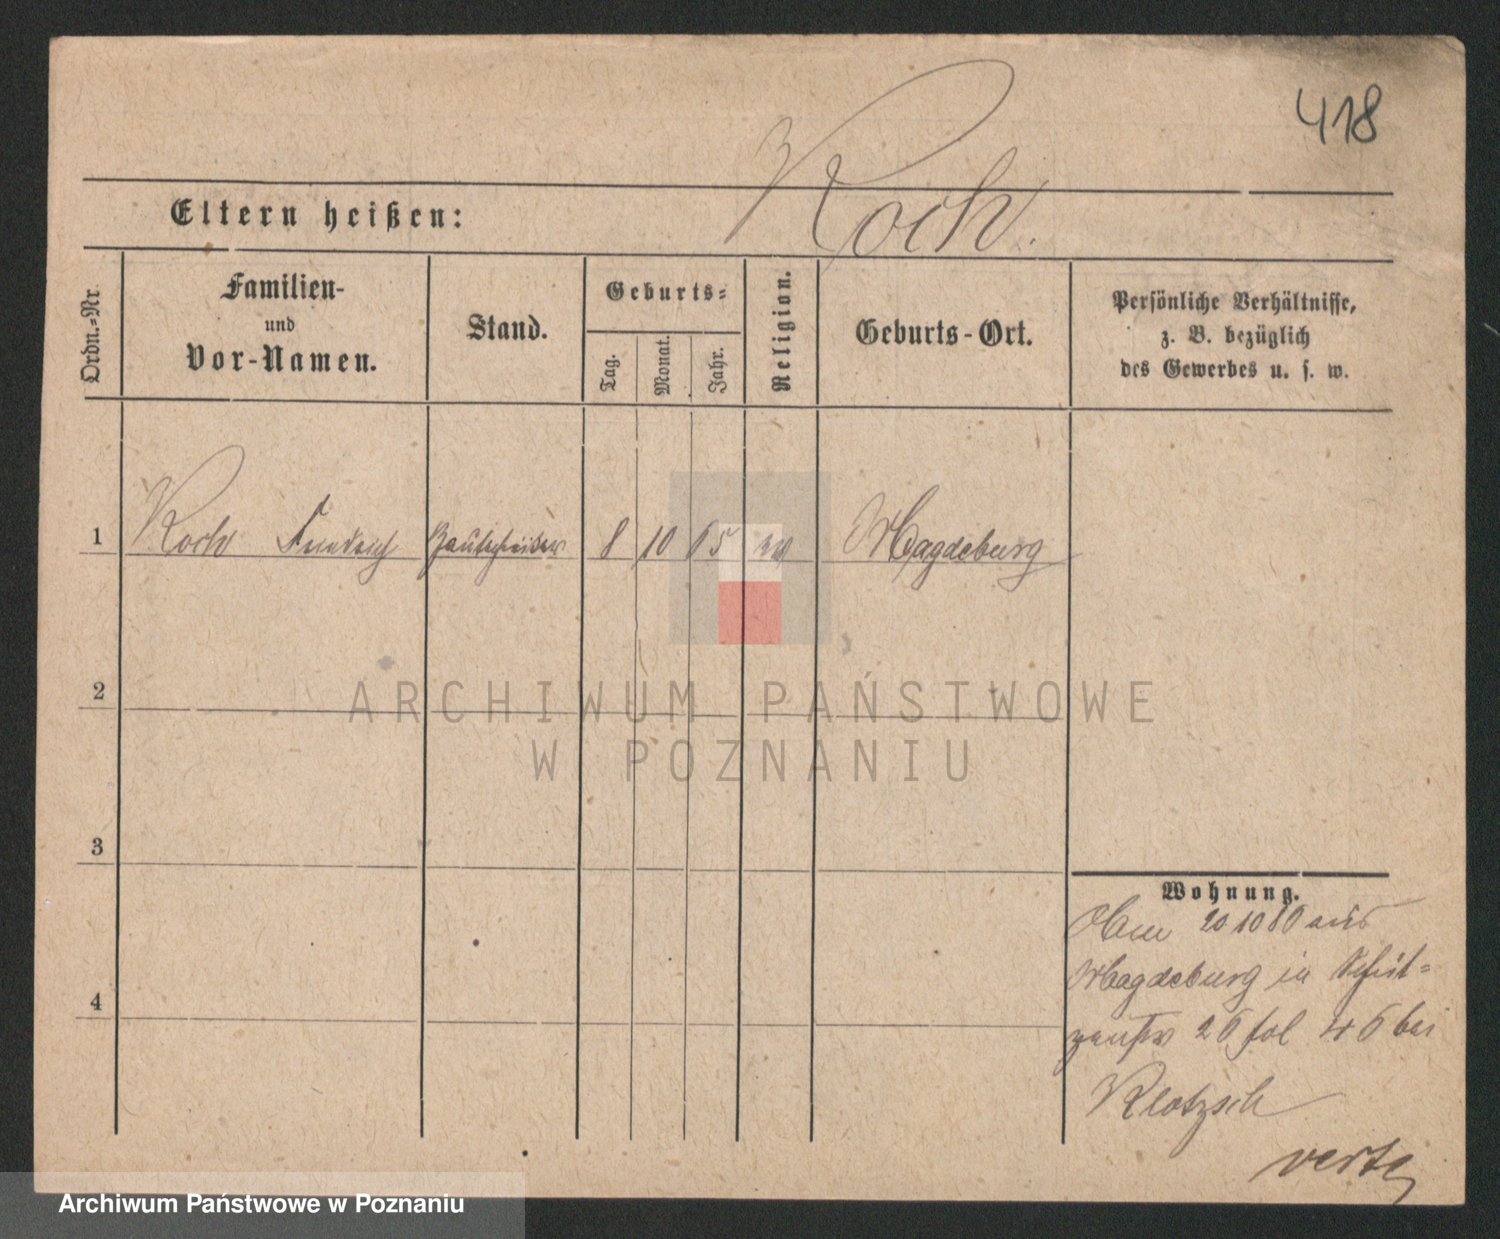 418
Koch.
Eltern heißen:
Ordn.-Nr.
Familien-
und
Vor-Namen.
Stand.
Geburts-
Tag.
Monat.
Jahr.
Religion.
Geburts-Ort.
Persönliche Verhältnisse,
z. B. bezüglich
des Gewerbes u. s. w.
1 Koch Friedrich 8 10 65 ev Magdeburg
2
3
4
Wohnung.
20 10 80 aus
Magdeburg in Schüt-
zenstr 26 fol 46 bei
Klotzsch
verte
ARCHIWUM PAŃSTWOWE
W POZNANIU
Archiwum Państwowe w Poznaniu